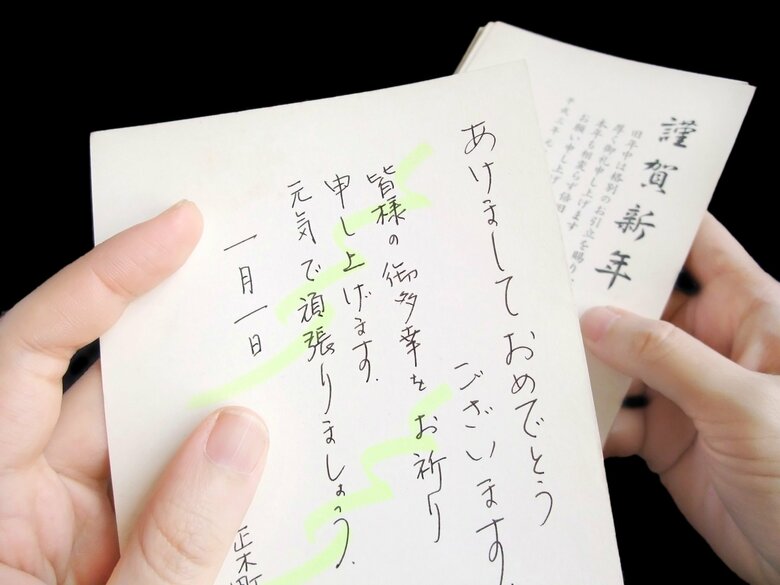 あけまして おめでとう
ございます
皆様の御多幸をお祈り
申し上げます.
元気で頑張りましょう.
一月一日
正木町
謹賀新年
旧年中は格別のお引立を賜り
厚く御礼申し上げます
本年も相変らず倍旧
お願い申し上げ
平成三年 元